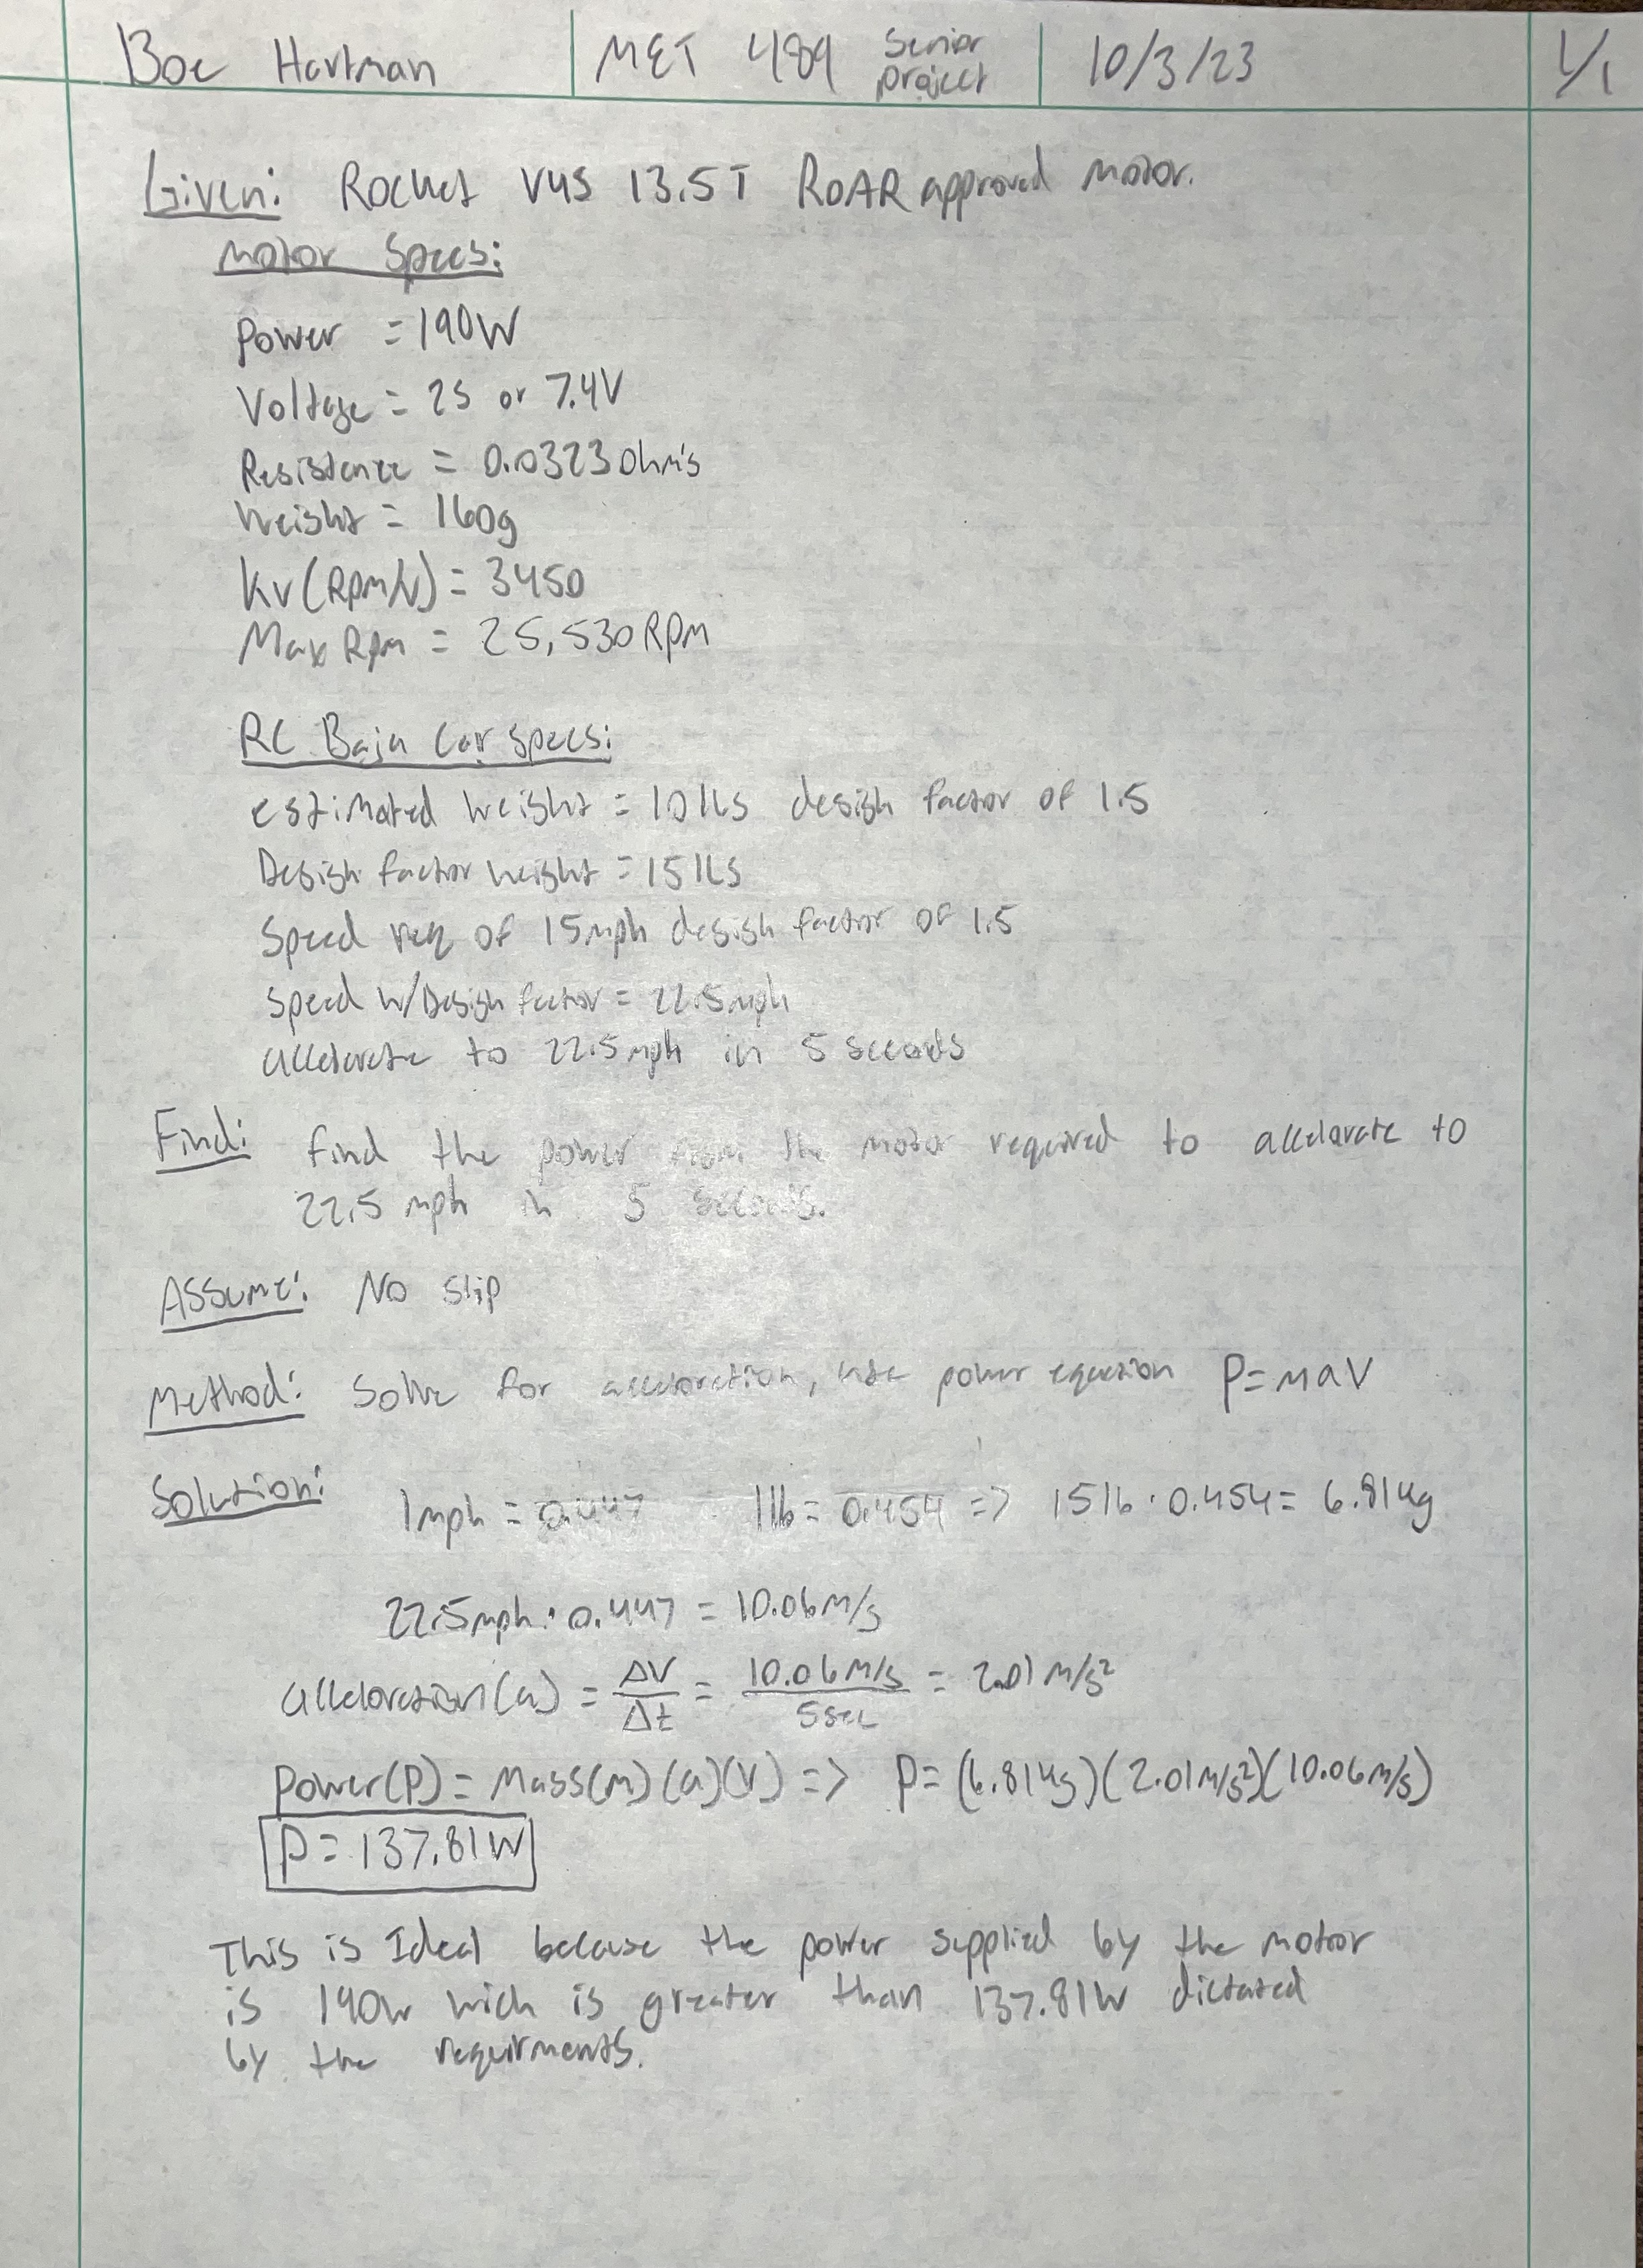 Boe Hartman MET 489 Senior project 10/3/23 1/1
Given: Rocket V4S 13.5T ROAR approved motor.
Motor Specs:
Power = 190W
Voltage = 2S or 7.4V
Resistance = 0.0323 ohm's
Weight = 160g
Kv(Rpm/v) = 3450
Max Rpm = 25,530 RPM
RC Baja Car specs:
estimated weight = 10 lbs design factor of 1.5
Design factor weight = 15 lbs
Speed req of 15 mph design factor of 1.5
Speed w/Design factor = 22.5 mph
accelerate to 22.5 mph in 5 seconds
Find: find the power from the motor required to accelarate to
22.5 mph in 5 seconds.
Assume: No slip
Method: Solve for acceleration, use power equasion P=maV
Solution: 1mph = 0.447 1lb = 0.454 => 15lb · 0.454 = 6.81kg
22.5mph · 0.447 = 10.06 m/s
acceloration(a) = ΔV/Δt = 10.06 m/s / 5sec = 2.01 m/s²
Power(P) = Mass(m)(a)(v) => P = (6.81kg)(2.01m/s²)(10.06m/s)
P = 137.81W
This is Ideal because the power supplied by the motor
is 190w wich is greater than 137.81W dictated
by the requirments.